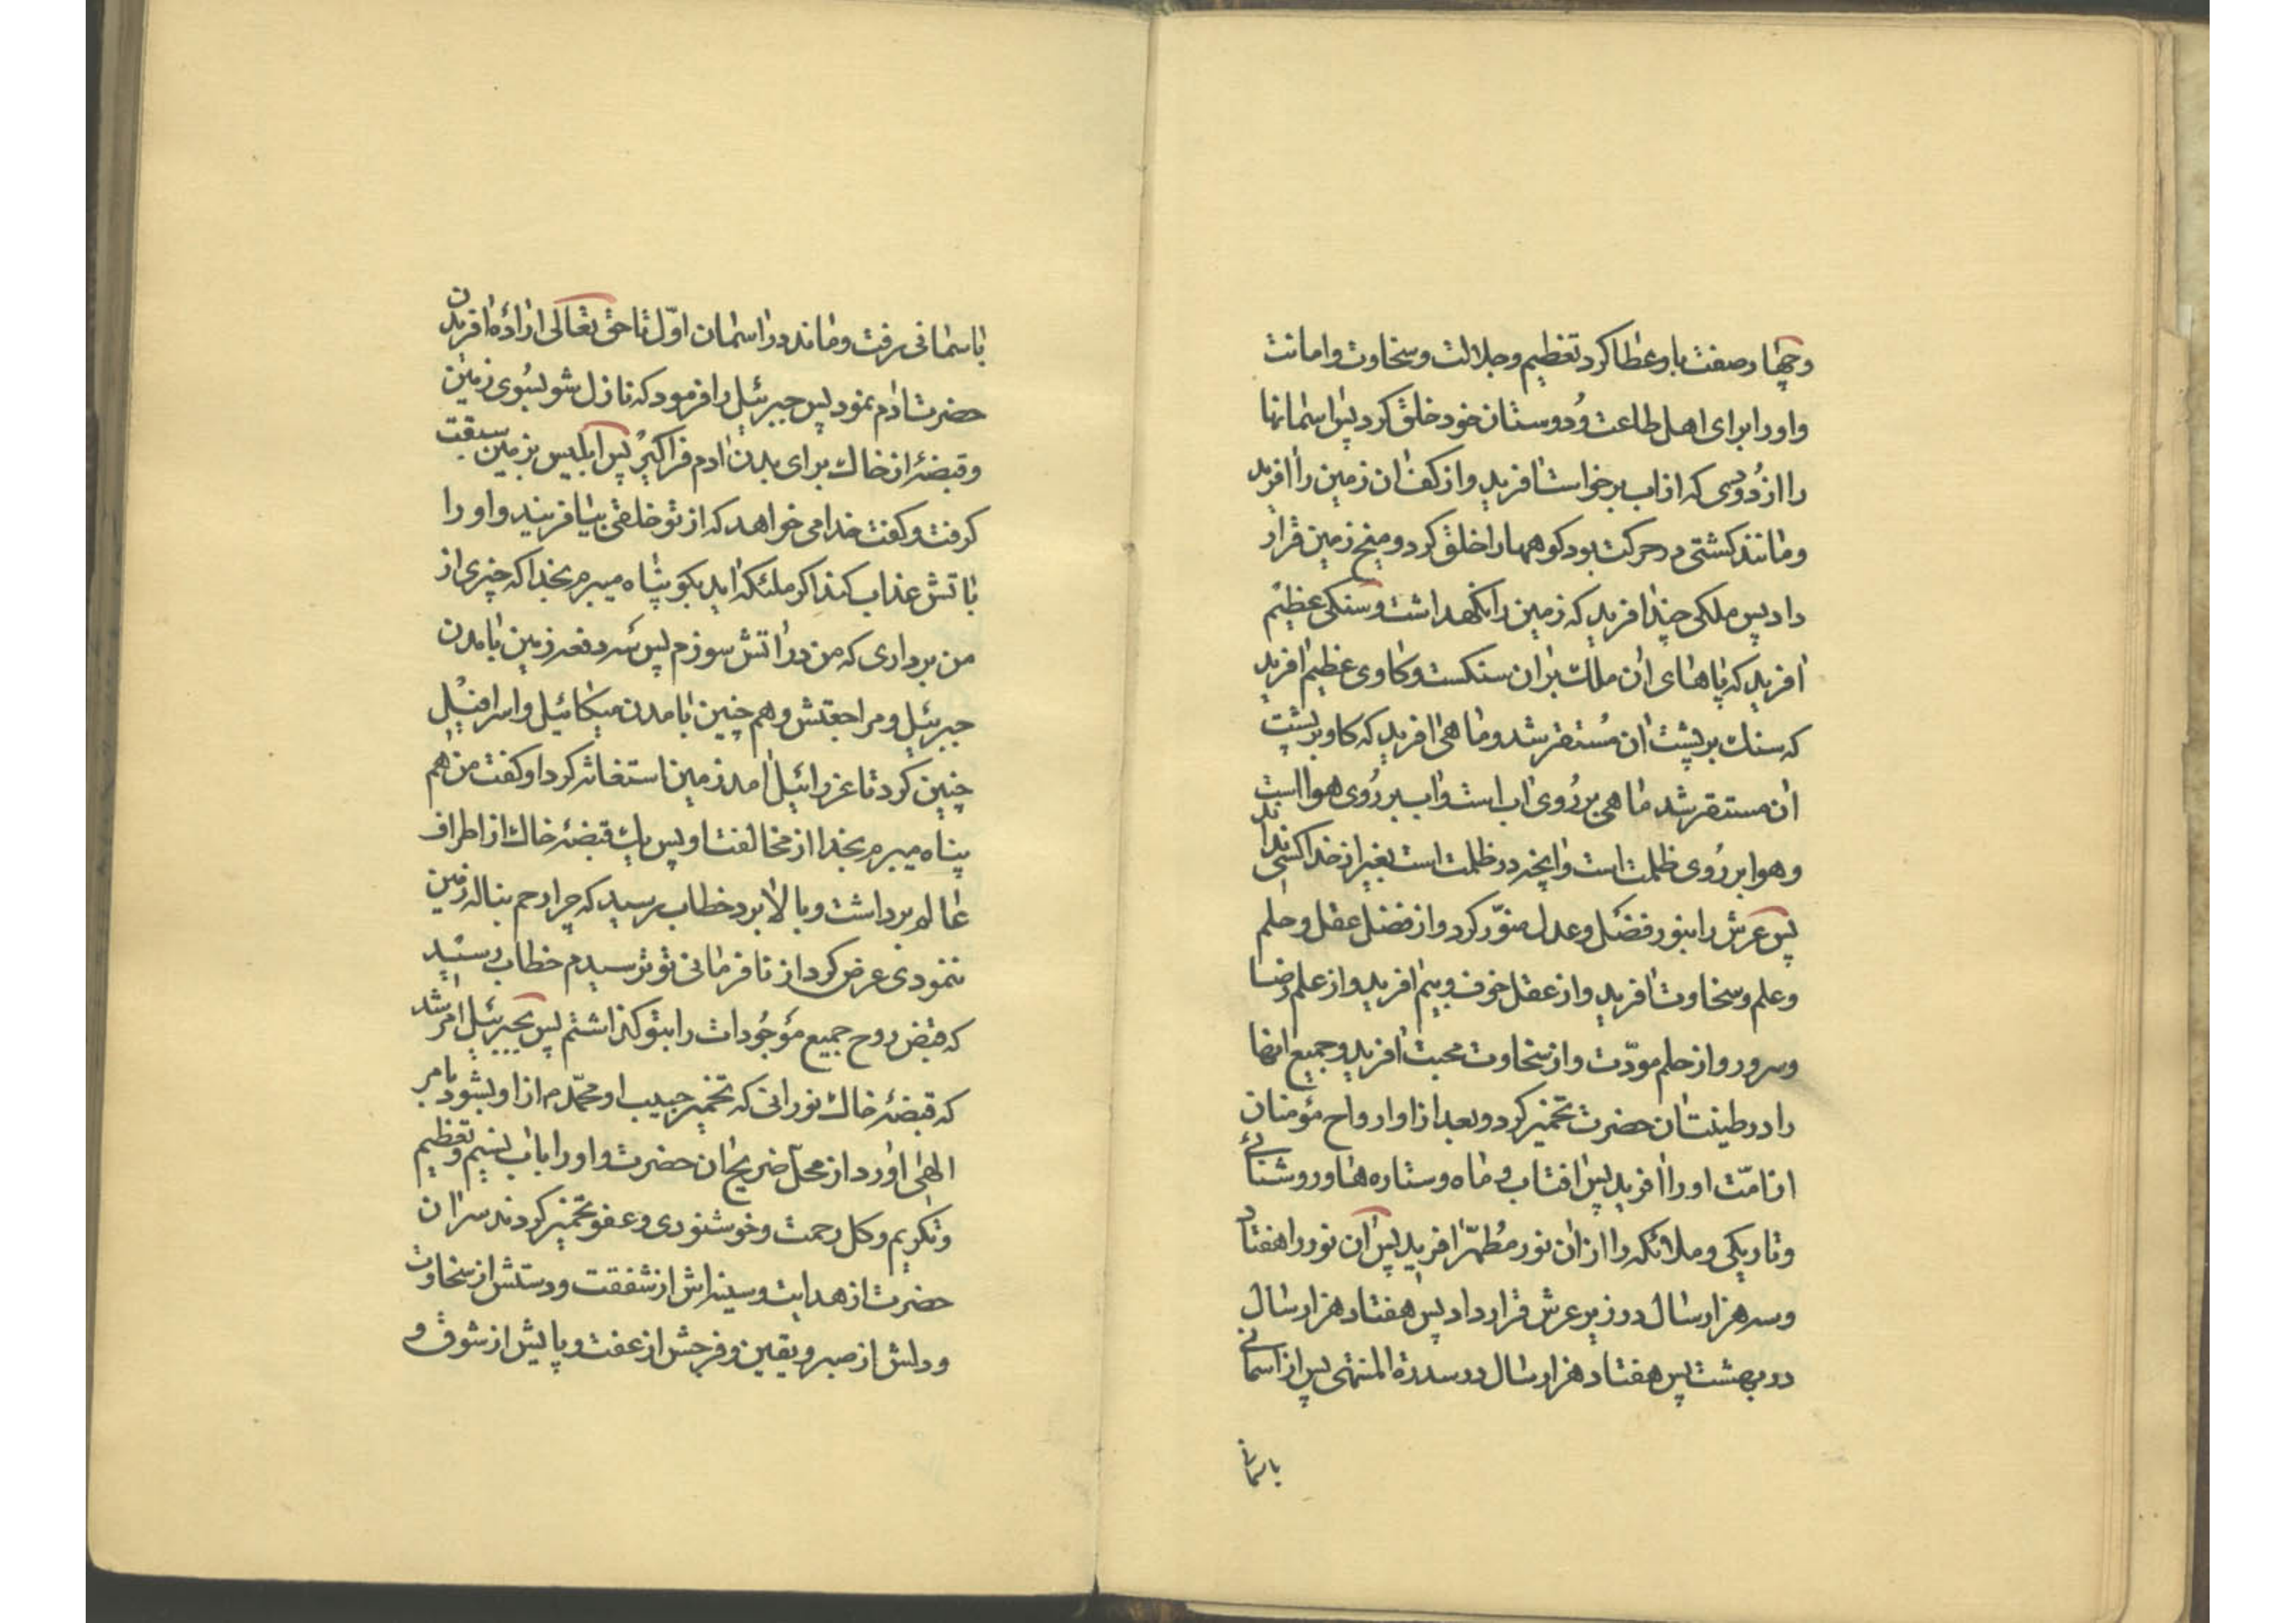 وچهار صفت باو عطا کرد تعظیم وجلالت وسخاوت وامانت
واورا برای اهل طاعت ودوستان خود خلق کرد پس اسمانها
را از دودی که از اب برخواست افرید واز کف ان زمین را افرید
ومانند کشتی در حرکت بود کوهها را خلق کرد و میخ زمین قرار
داد پس ملکی چند افرید که زمین را نکهداشت وسنکی عظیم
افرید که پاهای ان ملک بر ان سنکست وکاوی عظیم افرید
که سنك بر پشت ان مستقر شد وماهی افرید که کاو بر پشت
ان مستقر شد ماهی بر روی اب است واب بر روی هوا است
وهوا بر روی ظلمت است وانچه در ظلمت است بغیر از خدا کسی نداند
پس عرش را بنور فضل وعدل منور کرد واز فضل عقل وحلم
وعلم وسخاوت افرید واز عقل خوف وبیم افرید واز علم رضا
وسرور واز حلم مودّت واز سخاوت محبت افرید وجمیع اینها
را در طینت ان حضرت تخمیر کرد وبعد از او ارواح مؤمنان
از امّت اورا افرید پس افتاب و ماه وستاره ها وروشنائی
وتاریکی وملائکه را از ان نور مُطهّر افرید پس ان نور را هفتاد
وسه هزار سال در زیر عرش قرار داد پس هفتاد هزار سال
در بهشت پس هفتاد هزار سال در سدرة المنتهی پس از اسمانی
باسمانی
باسمانی رفت وماند در اسمان اوّل تا حق تعالی اراده افریدن
حضرت ادم نمود پس جبرئیل را فرمود که نازل شو بسوی زمین
وقبضهٔ از خاك برای بدن ادم فراکیر پس ابلیس بزمین سبقت
کرفت وکفت خدا می خواهد که از تو خلقی بیافریند واورا
باتش عذاب کند اکر ملئکه اید بکو پناه میبرم بخدا که چیزی از
من برداری که من در اتش سوزم پس سه دفعه زمین بامدن
جبرئیل ومراجعتش وهم چنین بامدن میکائیل واسرافیل
چنین کرد تا عزرائیل امد زمین استغاثه کرد او کفت من هم
پناه میبرم بخدا از مخالفت او پس یك قبضهٔ خاك از اطراف
عالم برداشت وبالا برد خطاب رسید که چرا رحم بناله زمین
ننمودی عرض کرد از نافرمانی تو ترسیدم خطاب رسید
که قبض روح جمیع مؤجودات را بتو کذاشتم پس بجبرئیل امر شد
که قبضهٔ خاك نورانی که تخمیر حبیب او محمّد م از او بشود بامر
الهی اورد از محلّ ضریح ان حضرت واورا باب تسنیم وتعظیم
وتکریم وکل رحمت وخوشنودی وعفو تخمیر کردند سر ان
حضرت از هدایت وسینه‌اش از شفقت ودستش از سخاوت
ودلش از صبر ویقین وفرجش از عفت وپایش از شوق و